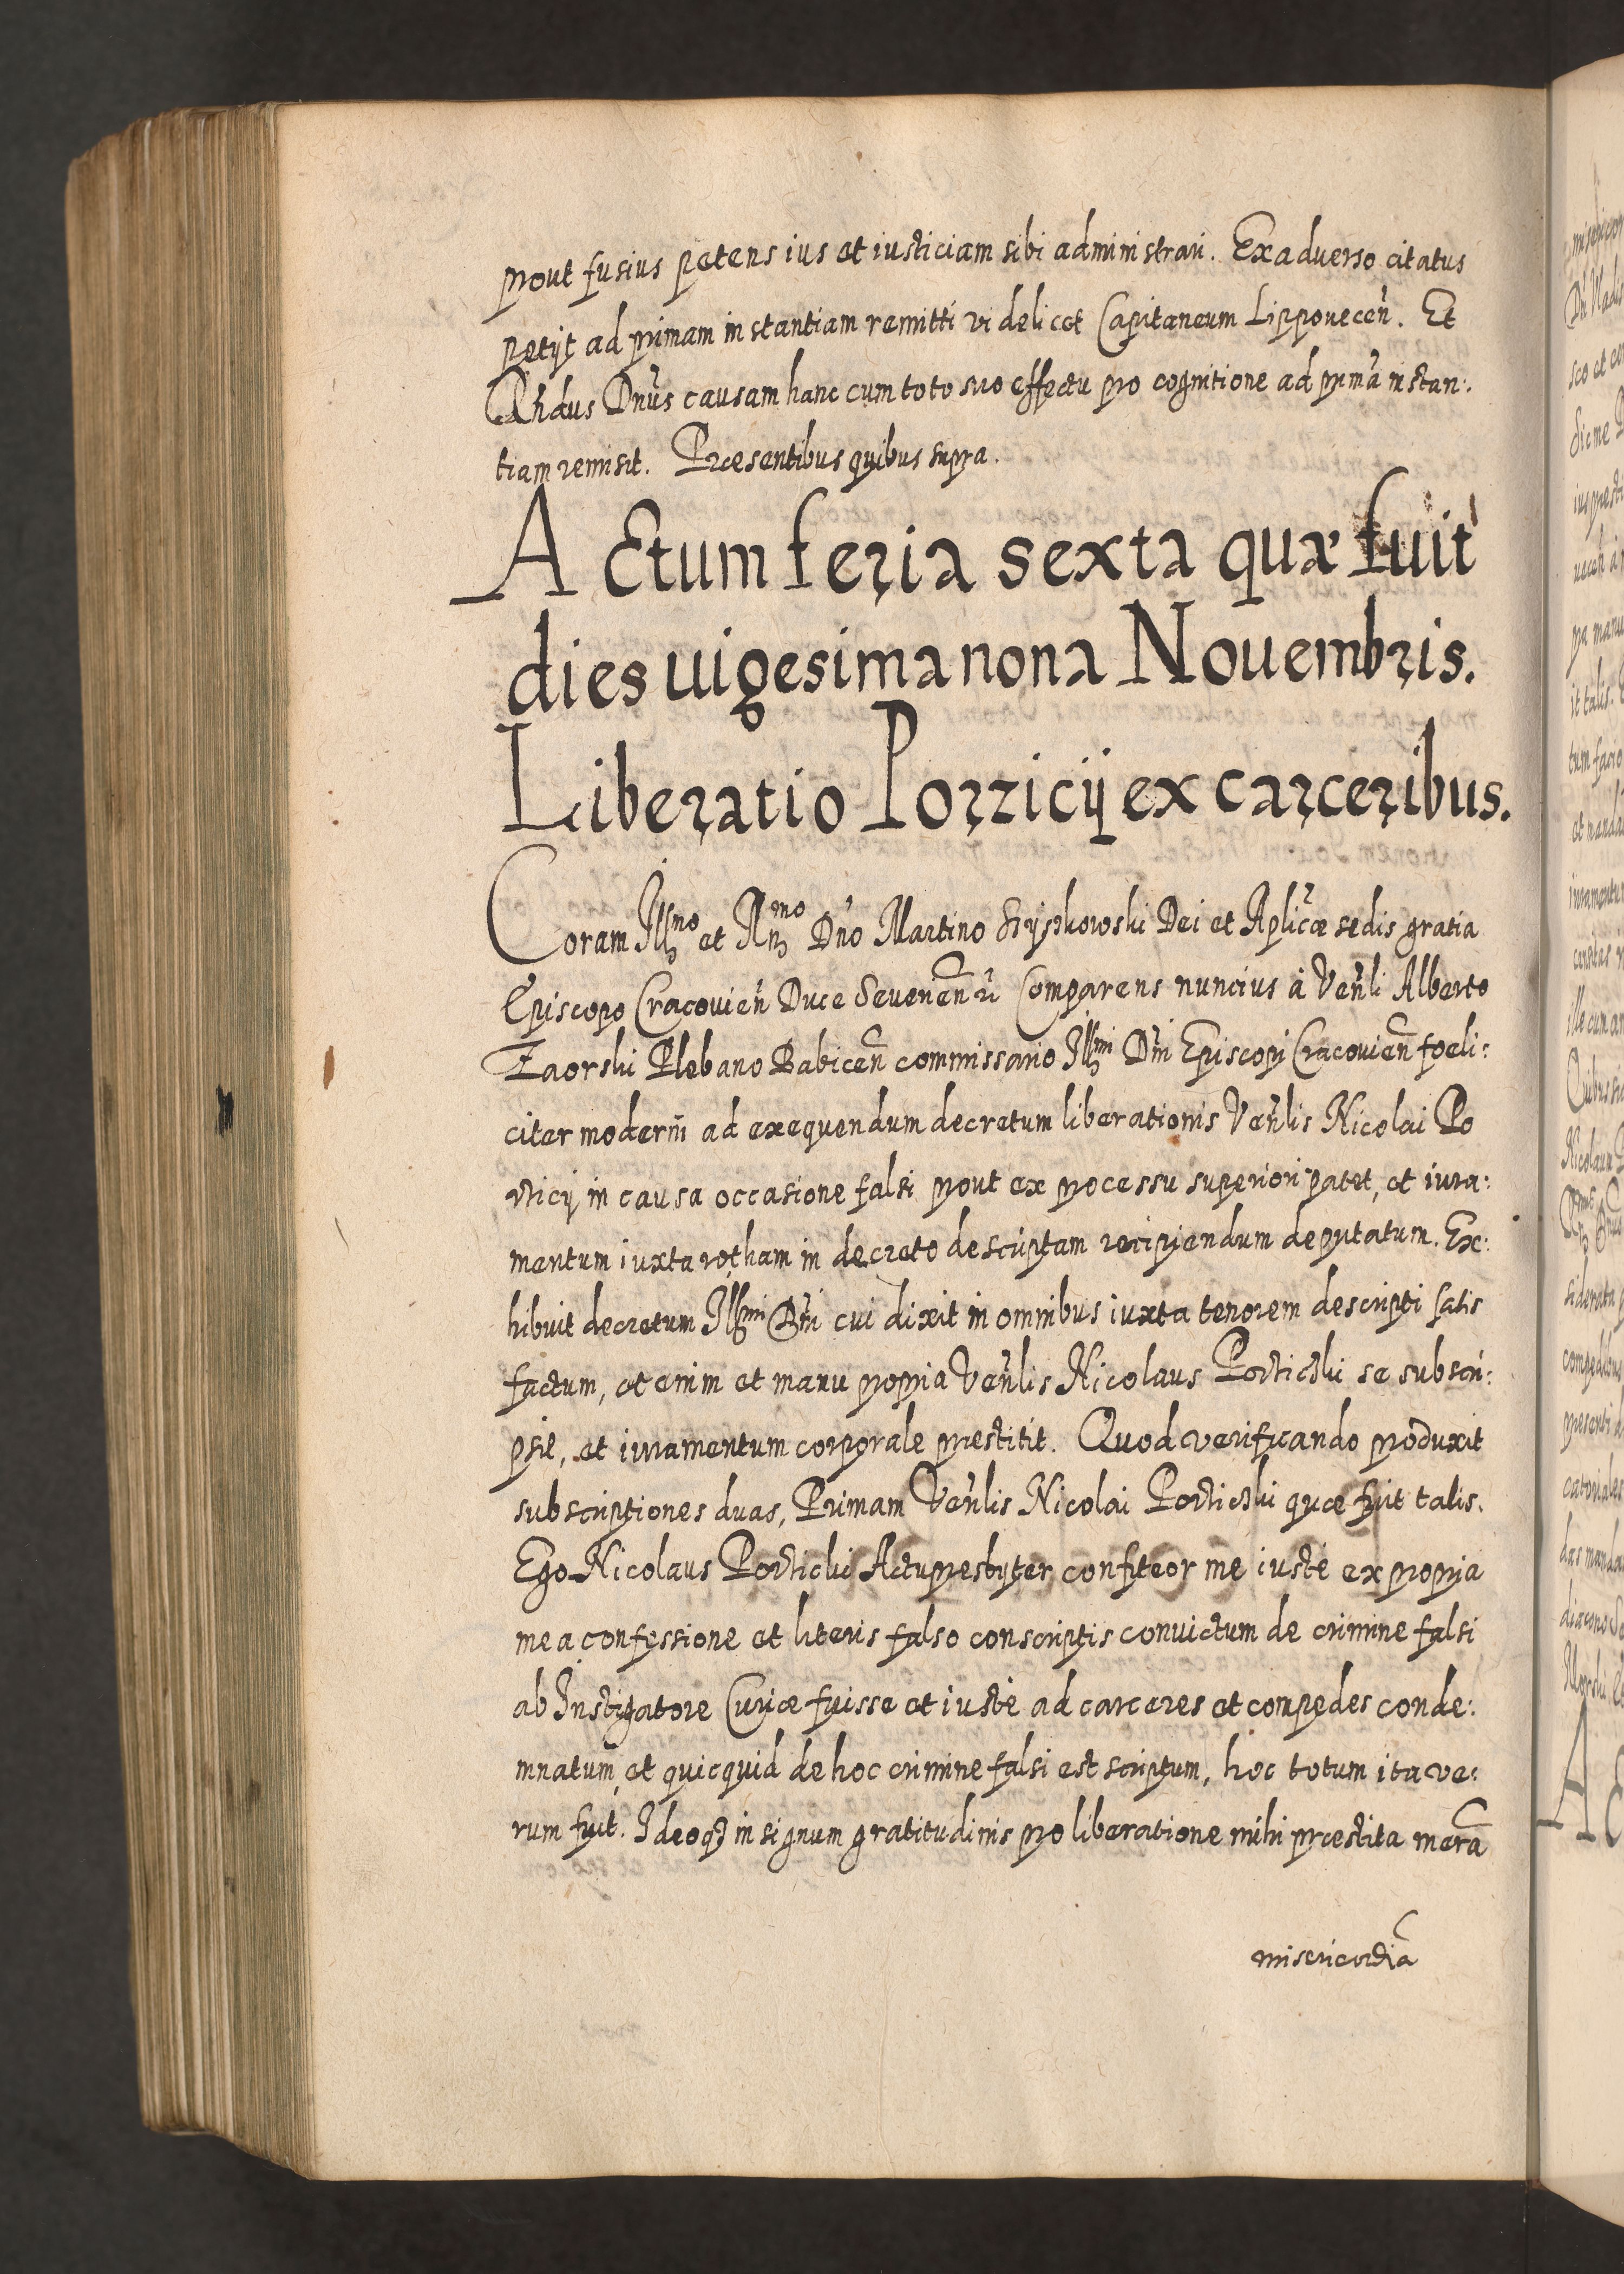 prout fusius petens ius et iusticiam sibi administrari. Ex adverso citatus
petijt ad primam instantiam remitti videlicet Capitaneum Lippouecen̄. Et
Rn̄dus Dn̄us causam hanc cum toto suo effectu pro cognitione ad primā instan:
tiam remisit. Præsentibus quibus supra.
Actum feria sexta quæ fuit
dies uigesima nona Nouembris.
Liberatio Porzicij ex carceribus.
Coram Illmo et Rmo Dn̄o Martino Szyszkowski Dei et Aplicæ sedis gratia
Episcopo Cracovien̄ Duce Severien̄ Comparens nuncius à Ven̄li Alberto
Zaorski Plebano Babicen̄ commissario Illmi Dn̄i Episcopi Cracovien̄ foeli:
citer moderni ad exequendum decretum liberationis Ven̄lis Nicolai Po
rticij in causa occasione falsi prout ex processu superiori patet, et iura:
mentum iuxta rotham in decreto descriptam recipiendum deputatum. Ex:
hibuit decretum Illmi Dn̄i cui dixit in omnibus iuxta tenorem descripti satis
factum, et enim et manu propria Ven̄lis Nicolaus Portickli se subscri:
psit, et iuramentum corporale præstitit. Quod verificando produxit
subscriptiones duas, Primam Ven̄lis Nicolai Portickli quæ fuit talis.
Ego Nicolaus Porticki Actu presbyter confiteor me iustè ex propria
mea confessione et literis falso conscriptis convictum de crimine falsi
ab Instigatore Curiæ fuisse et iustè ad carceres et compedes conde:
mnatum, et quicquid de hoc crimine falsi est scriptum, hoc totum ita ve:
rum fuit. Ideoq3 in signum gratitudinis pro liberatione mihi præstita merā
misericordiā